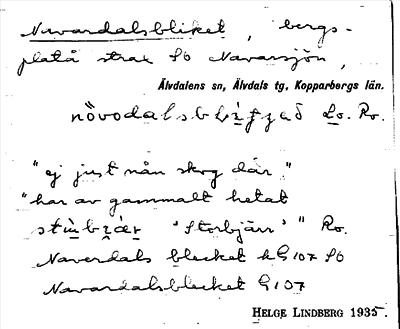 Navardalsbliket, bergs-
platå strax SO Navarsjön,
Älvdalens sn, Älvdals tg, Kopparbergs län.
Lo. Ro.
"ej just nån skog där."
"har av gammalt hetat
'Storbjärr'" Ro.
Naverdals blecket hG107 SO
Navardalsblecket G107
HELGE LINDBERG 1935.